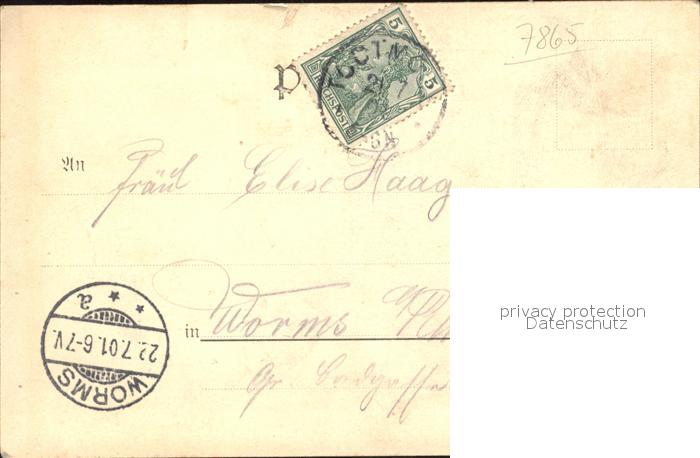 7865
5 5
REICHSPOST
P
An Fräul Elise Haag
in Worms
WORMS
22.7.01.6-7V.
a
privacy protection
Datenschutz